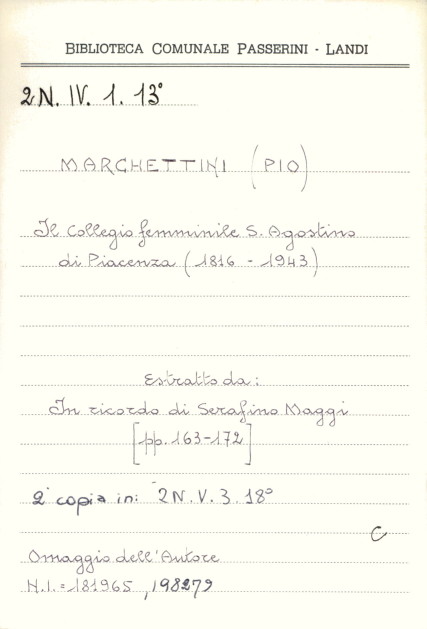 BIBLIOTECA COMUNALE PASSERINI - LANDI
2N. IV. 1. 13°
MARCHETTINI (PIO)
Il Collegio femminile S. Agostino
di Piacenza (1816 - 1943)
Estratto da:
In ricordo di Serafino Maggi
[pp. 163-172]
2ª copia in: 2N.V.3.18°
C
Omaggio dell'Autore
N.I. = 181965, 198279